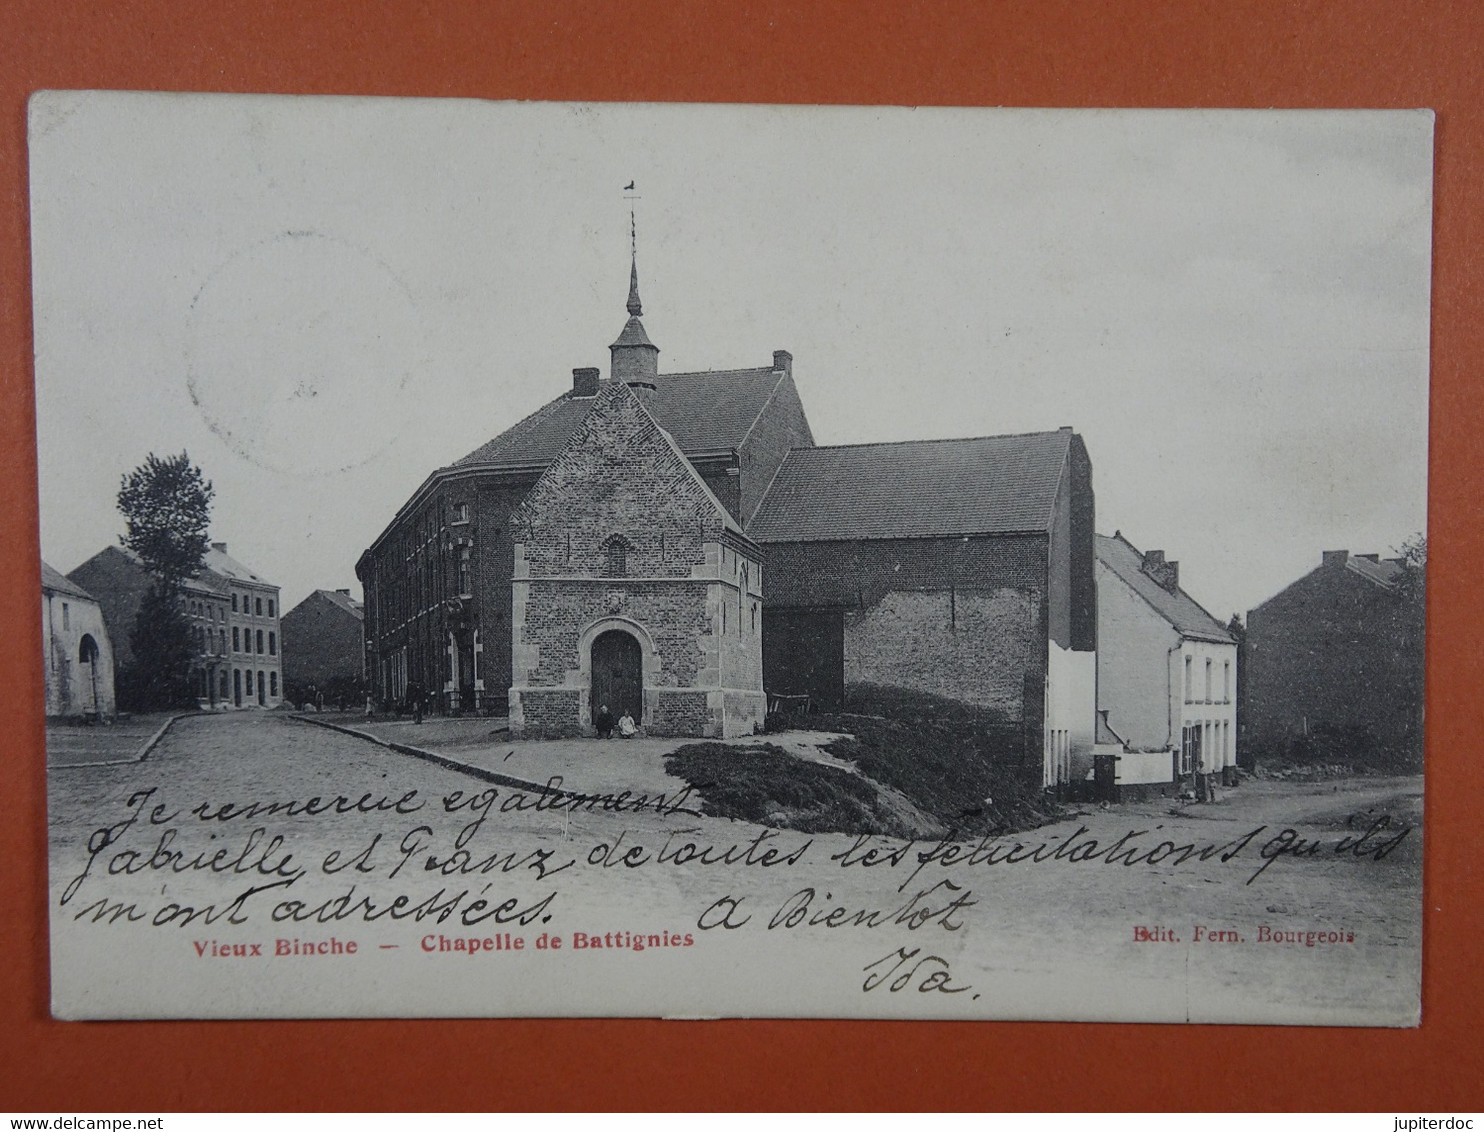 Je remercie également
Gabrielle, et Franz de toutes les félicitations qu'ils
m'ont adressées. A Bientôt
Vieux Binche — Chapelle de Battignies
Edit. Fern. Bourgeois
Ida.
delcampe.net
jupiterdoc